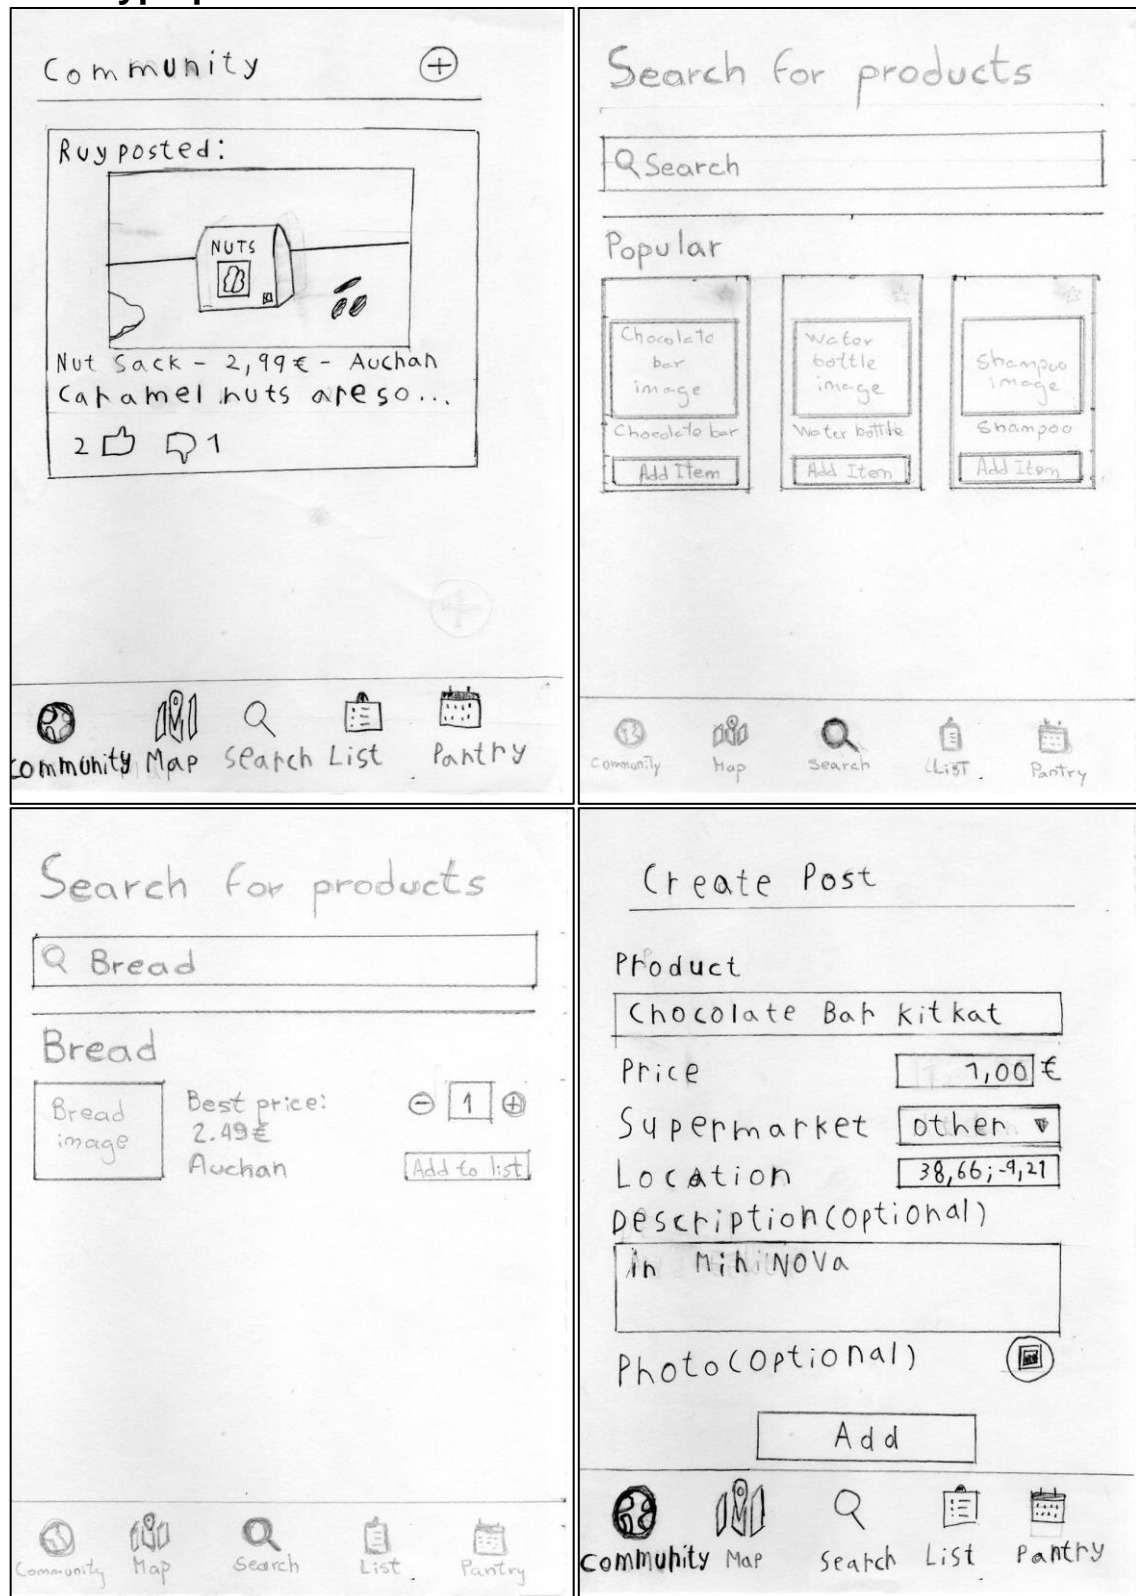 Community
Ruy posted:
NUTS
Nut Sack - 2,99€ - Auchan
Caramel nuts are so...
2 1
Community Map Search List Pantry
Search for products
Search
Popular
Chocolate bar image
Water bottle image
Shampoo image
Chocolate bar Water bottle Shampoo
Add Item Add Item Add Item
Community Map Search LIST Pantry
Search for products
Bread
Bread
Bread image
Best price:
2.49€
Auchan
1
Add to list
Community Map Search List Pantry
Create Post
Product
Chocolate Bar kitkat
Price 1,00 €
Supermarket other
Location 38,66;-9,21
Description(optional)
in MiniNOVa
Photo(optional)
Add
Community Map Search List Pantry